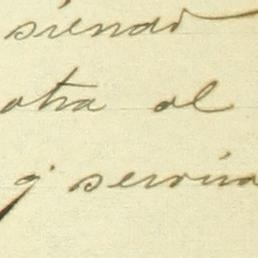 siendo
otra al
q' serviria